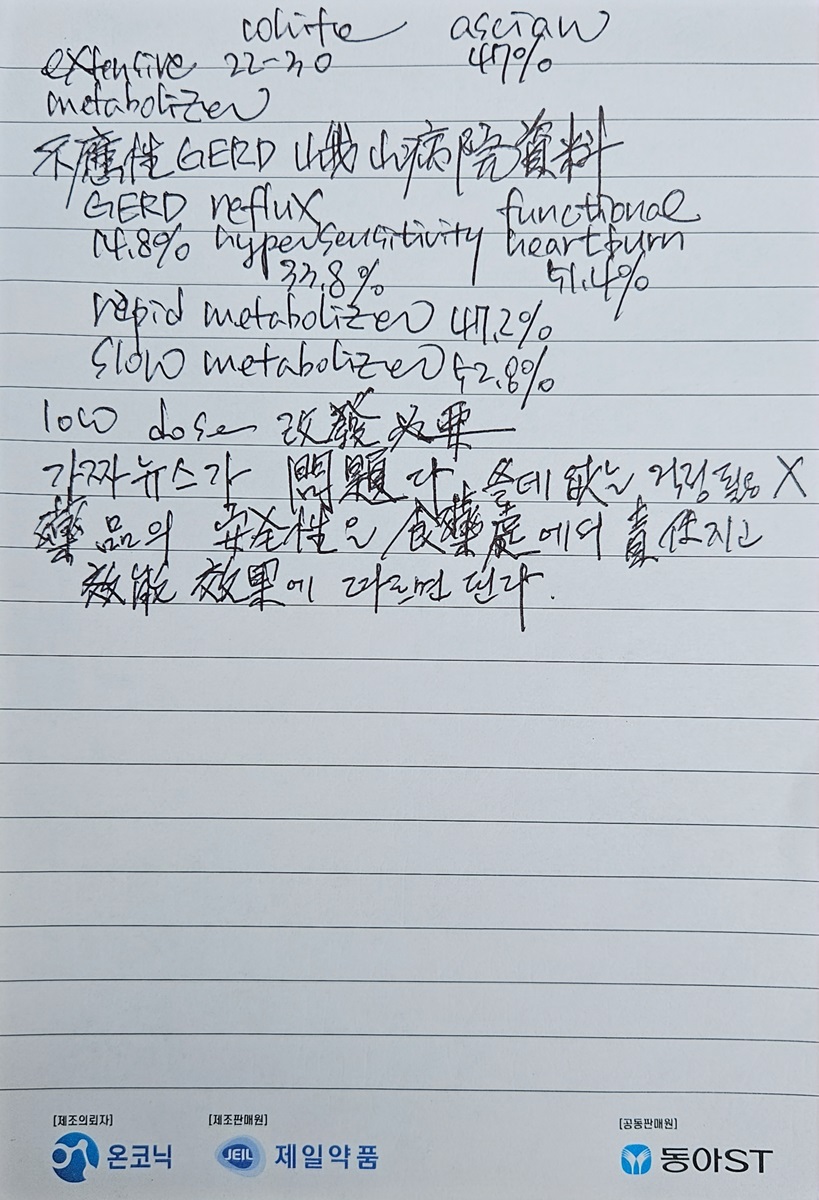 cohite ascian
extensive 22-30 47%
metabolizer
不應性 GERD 峨山病院資料
GERD reflux functional
14.8% hypersensitivity heartburn
33.8% 51.4%
repid metabolizer 47.2%
slow metabolizer 52.8%
low dose 改發 必要
가짜뉴스가 問題다 쓸데 없는 걱정 필요 X
藥品의 安全性은 食藥處에서 責任지고
效能 效果에 따르면 된다.
[제조의뢰자] [제조판매원] [공동판매원]
온코닉 JEIL 제일약품 동아ST